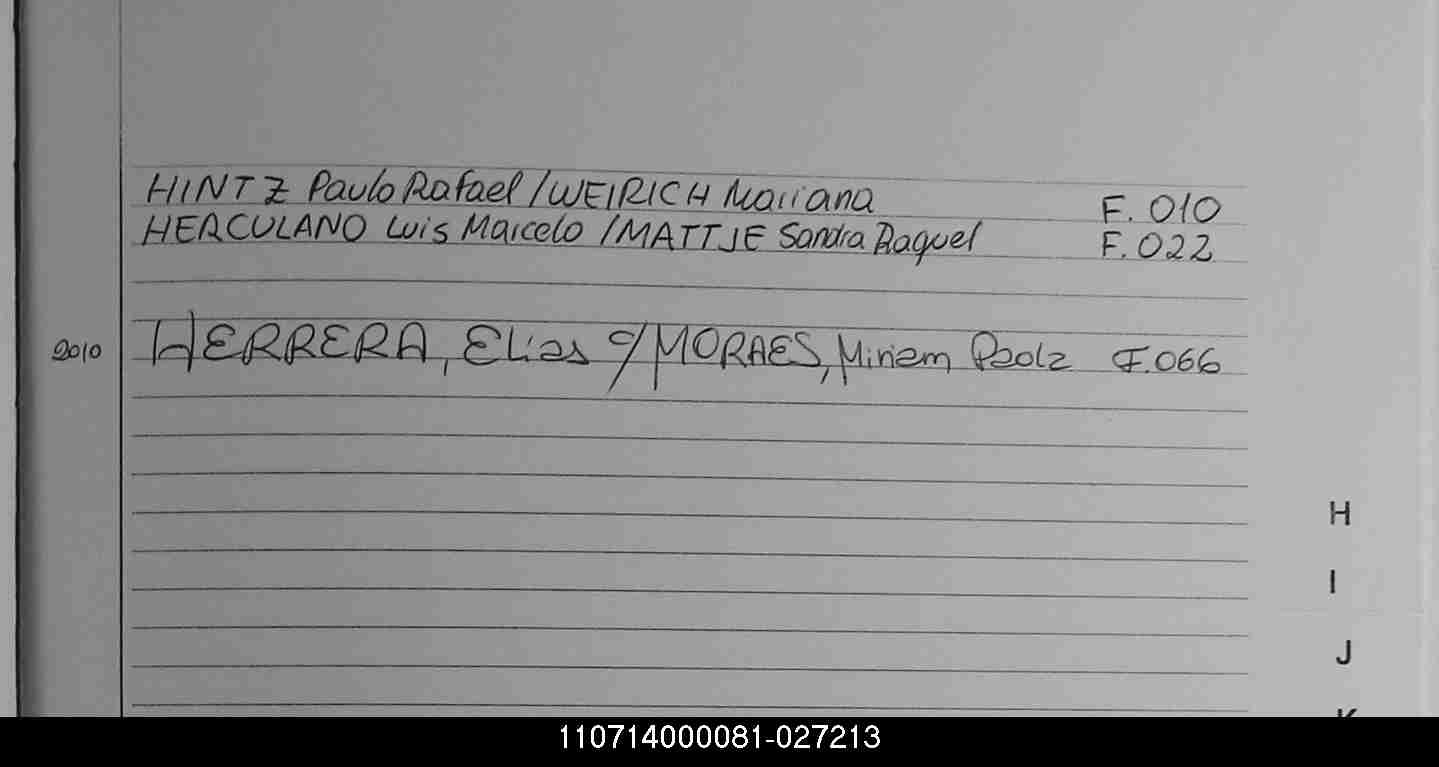 HINTZ Paulo Rafael / WEIRICH Mariana F. 010
HERCULANO Luis Marcelo / MATTJE Sandra Raquel F. 022
2010 HERRERA, Elias c/ MORAES, Miriam Paola F. 066
H
I
J
K
110714000081-027213